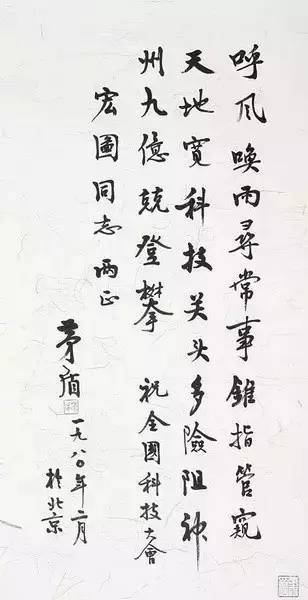 呼风唤雨尋常事錐指管窺
天地寬科技关头多險阻神
州九億兢登攀 祝全國科技大會
宏圖同志 两正
茅盾
一九八〇年二月
於北京